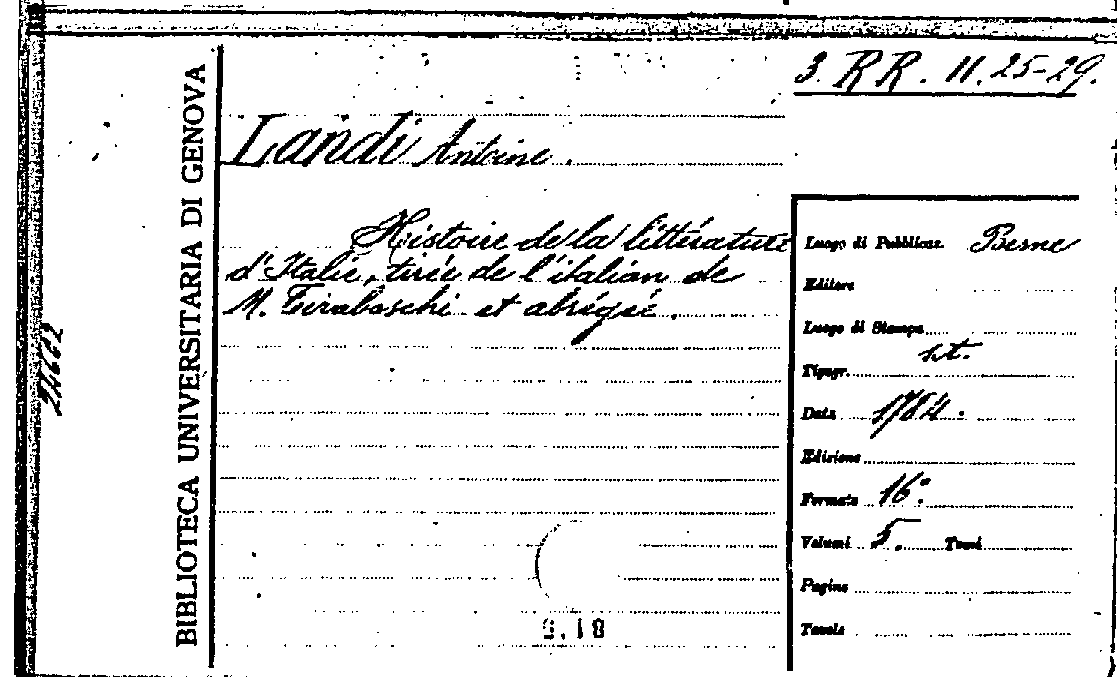 3. RR. II. 25-29.
BIBLIOTECA UNIVERSITARIA DI GENOVA
24662
Landi Antoine.
Histoire de la littérature
d'Italie, tirée de l'italian de
M. Tiraboschi et abrégé.
Luogo di Pubblicaz. Berne
Editore
Luogo di Stampa
Tipogr. s.t.
Data 1784.
Edizione
Formato 16°
Volumi 5. Tomi
Pagine
Tavole